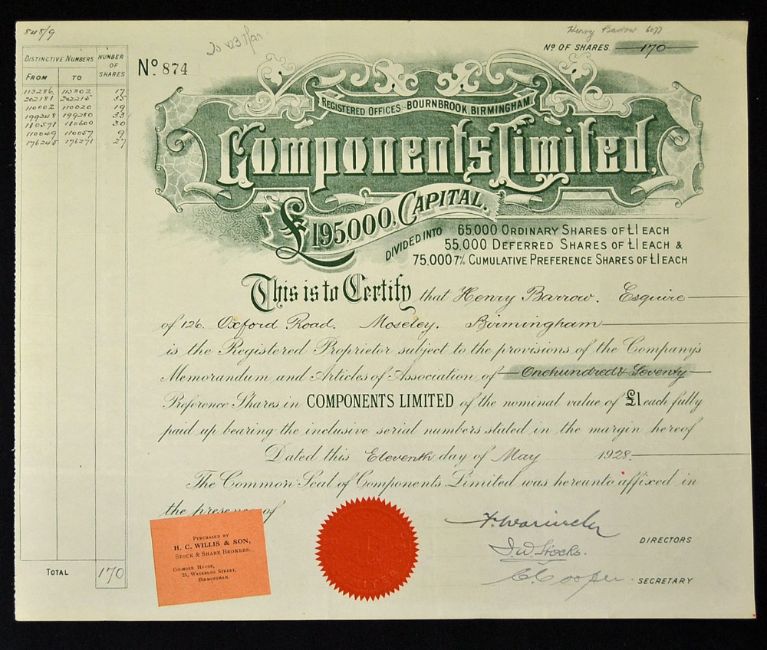 848/9
Henry Barrow
Nº OF SHARES 170
DISTINCTIVE NUMBERS NUMBER OF SHARES
FROM TO
113286 113302 17
202181 202215 35
110002 110020 19
199248 199280 33
180571 180600 30
110049 110057 9
176245 176271 27
Nº 874
REGISTERED OFFICES:-BOURNBROOK, BIRMINGHAM.
Components Limited,
£195,000, CAPITAL.
DIVIDED INTO
65,000 ORDINARY SHARES OF £1 EACH
55,000 DEFERRED SHARES OF £1 EACH &
75,000 7% CUMULATIVE PREFERENCE SHARES OF £1 EACH
This is to Certify that Henry Barrow. Esquire
of 126. Oxford Road. Moseley. Birmingham
is the Registered Proprietor subject to the provisions of the Company's
Memorandum and Articles of Association of Onehundred & Seventy
Preference Shares in COMPONENTS LIMITED of the nominal value of £1 each fully
paid up bearing the inclusive serial numbers stated in the margin hereof
Dated this Eleventh day of May 1928
The Common Seal of Components Limited was hereunto affixed in
the presence of
PURCHASED BY
H. C. WILLIS & SON,
STOCK & SHARE BROKERS.
COLMORE HOUSE,
21, WATERLOO STREET,
BIRMINGHAM.
J. W. Stocks.
DIRECTORS
C. Cooper
SECRETARY
TOTAL 170